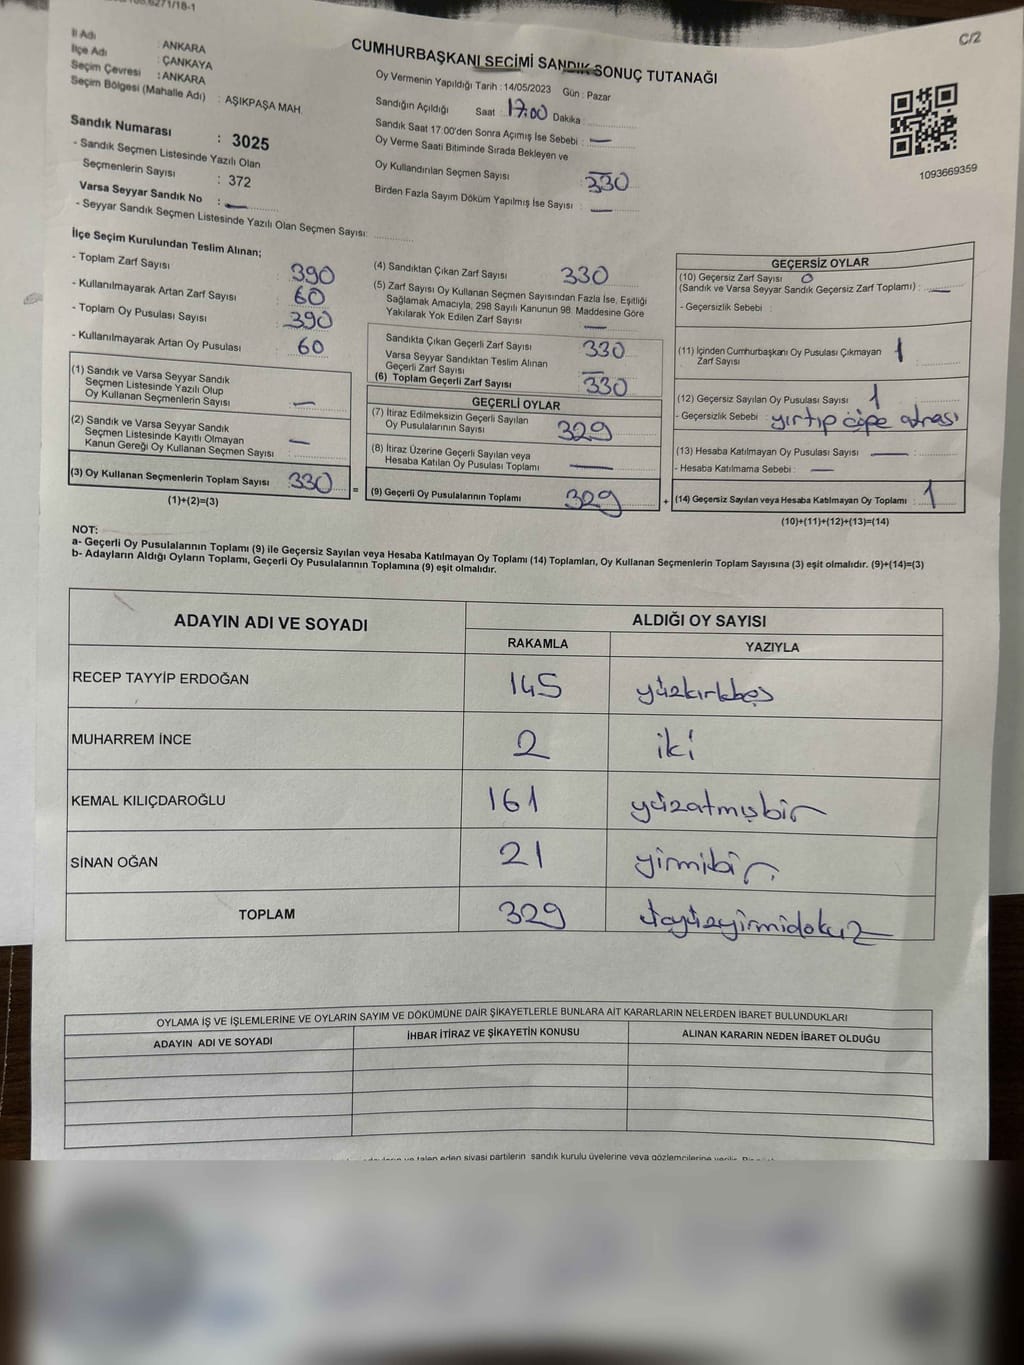 6271/18-1
C/2
İl Adı : ANKARA
İlçe Adı : ÇANKAYA
Seçim Çevresi : ANKARA
Seçim Bölgesi (Mahalle Adı) : AŞIKPAŞA MAH.
Sandık Numarası : 3025
- Sandık Seçmen Listesinde Yazılı Olan
Seçmenlerin Sayısı : 372
Varsa Seyyar Sandık No : —
- Seyyar Sandık Seçmen Listesinde Yazılı Olan Seçmen Sayısı:
CUMHURBAŞKANI SEÇİMİ SANDIK SONUÇ TUTANAĞI
Oy Vermenin Yapıldığı Tarih : 14/05/2023 Gün : Pazar
Sandığın Açıldığı Saat : 17:00 Dakika :
Sandık Saat 17.00'den Sonra Açımış İse Sebebi : —
Oy Verme Saati Bitiminde Sırada Bekleyen ve
Oy Kullandırılan Seçmen Sayısı : 330
Birden Fazla Sayım Döküm Yapılmış İse Sayısı : —
1093669359
İlçe Seçim Kurulundan Teslim Alınan;
- Toplam Zarf Sayısı : 390
- Kullanılmayarak Artan Zarf Sayısı : 60
- Toplam Oy Pusulası Sayısı : 390
- Kullanılmayarak Artan Oy Pusulası : 60
(1) Sandık ve Varsa Seyyar Sandık
Seçmen Listesinde Yazılı Olup
Oy Kullanan Seçmenlerin Sayısı : —
(2) Sandık ve Varsa Seyyar Sandık
Seçmen Listesinde Kayıtlı Olmayan
Kanun Gereği Oy Kullanan Seçmen Sayısı : —
(3) Oy Kullanan Seçmenlerin Toplam Sayısı : 330
(1)+(2)=(3)
=
(4) Sandıktan Çıkan Zarf Sayısı : 330
(5) Zarf Sayısı Oy Kullanan Seçmen Sayısından Fazla İse, Eşitliği
Sağlamak Amacıyla, 298 Sayılı Kanunun 98. Maddesine Göre
Yakılarak Yok Edilen Zarf Sayısı : —
Sandıkta Çıkan Geçerli Zarf Sayısı : 330
Varsa Seyyar Sandıktan Teslim Alınan
Geçerli Zarf Sayısı : —
(6) Toplam Geçerli Zarf Sayısı : 330
GEÇERLİ OYLAR
(7) İtiraz Edilmeksizin Geçerli Sayılan
Oy Pusulalarının Sayısı : 329
(8) İtiraz Üzerine Geçerli Sayılan veya
Hesaba Katılan Oy Pusulası Toplamı : —
(9) Geçerli Oy Pusulalarının Toplamı : 329
+
GEÇERSİZ OYLAR
(10) Geçersiz Zarf Sayısı 0
(Sandık ve Varsa Seyyar Sandık Geçersiz Zarf Toplamı) : —
- Geçersizlik Sebebi :
(11) İçinden Cumhurbaşkanı Oy Pusulası Çıkmayan
Zarf Sayısı : 1
(12) Geçersiz Sayılan Oy Pusulası Sayısı 1
- Geçersizlik Sebebi : yırtıp çöpe atması
(13) Hesaba Katılmayan Oy Pusulası Sayısı —
- Hesaba Katılmama Sebebi : —
(14) Geçersiz Sayılan veya Hesaba Katılmayan Oy Toplamı : 1
(10)+(11)+(12)+(13)=(14)
NOT:
a- Geçerli Oy Pusulalarının Toplamı (9) ile Geçersiz Sayılan veya Hesaba Katılmayan Oy Toplamı (14) Toplamları, Oy Kullanan Seçmenlerin Toplam Sayısına (3) eşit olmalıdır. (9)+(14)=(3)
b- Adayların Aldığı Oyların Toplamı, Geçerli Oy Pusulalarının Toplamına (9) eşit olmalıdır.
ADAYIN ADI VE SOYADI ALDIĞI OY SAYISI
RAKAMLA YAZIYLA
RECEP TAYYİP ERDOĞAN 145 yüzkırkbeş
MUHARREM İNCE 2 iki
KEMAL KILIÇDAROĞLU 161 yüzatmışbir
SİNAN OĞAN 21 yirmibir
TOPLAM 329 üçyüzyirmidokuz
OYLAMA İŞ VE İŞLEMLERİNE VE OYLARIN SAYIM VE DÖKÜMÜNE DAİR ŞİKAYETLERLE BUNLARA AİT KARARLARIN NELERDEN İBARET BULUNDUKLARI
ADAYIN ADI VE SOYADI İHBAR İTİRAZ VE ŞİKAYETİN KONUSU ALINAN KARARIN NEDEN İBARET OLDUĞU
talep eden siyasi partilerin sandık kurulu üyelerine veya gözlemcilerine verilir.